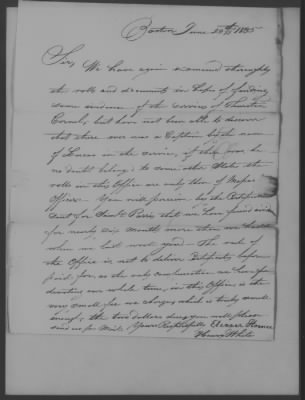 Boston June 20th 1835
Sir,
We have again examined thoroughly
the rolls and documents in hope of finding
some evidence of the service of
but have not been able to discover
that there ever was a Captain by the name
of in the service, if there was, he
no doubt belong'd to some other State the
rolls in this Office are only those of
Officers. You will perceive by the Certificate
sent for that we have found service
for nearly six months more than we
when we last wrote you. The rule of
the Office is not to deliver Certificates before
paid for, as the only compensation we have for
devoting our whole time, in this Office, is the
very small fee we charge, which is truly small
enough, the two dollars due you will please
send us by Mail. Yours Respectfully
Henry White